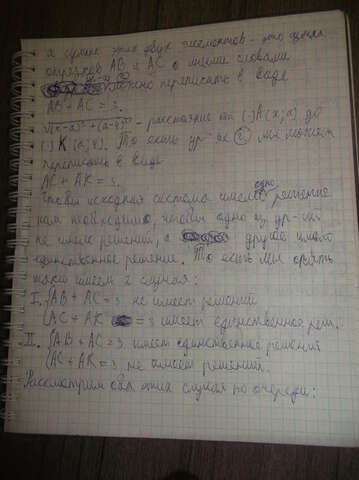 а сумма этих двух элементов - это длина
отрезков AB и AC с иными словами
можно переписать в виде
AB + AC = 3.
√(x-a)² + (a-y)² - расстояние от (·)A(x;a) до
(·) K (a;y). То есть ур-ие ② мы можем
переписать в виде
AC + AK = 3.
Чтобы исходная система имела одно решение
нам необходимо, чтобы одно из ур-ий
не имело решений, а другое имело
единственное решение. То есть мы опять
таки имеем 2 случая:
I. {AB + AC = 3 не имеет решений
{AC + AK = 3 имеет единственное реш.
II. {AB + AC = 3 имеет единственное решение
{AC + AK = 3, не имеет решений.
Рассмотрим оба этих случая по очереди: